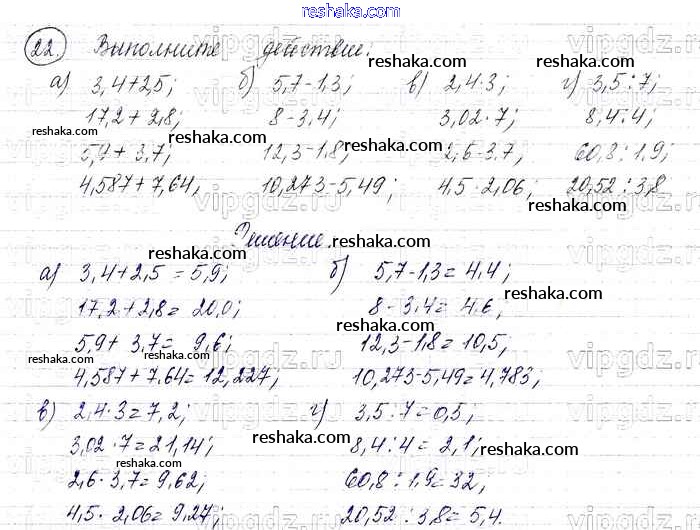 reshaka.com
22. Выполните действие:
а) 3,4+2,5; б) 5,7-1,3; в) 2,4·3; г) 3,5:7;
17,2+2,8; 8-3,4; 3,02·7; 8,4:4;
5,9+3,7; 12,3-1,8; 2,6·3,7; 60,8:1,9;
4,587+7,64; 10,273-5,49; 4,5·2,06; 20,52:3,8
Решение.
а) 3,4+2,5=5,9; б) 5,7-1,3=4,4;
17,2+2,8=20,0; 8-3,4=4,6;
5,9+3,7=9,6; 12,3-1,8=10,5;
4,587+7,64=12,227; 10,273-5,49=4,783;
в) 2,4·3=7,2; г) 3,5:7=0,5;
3,02·7=21,14; 8,4:4=2,1;
2,6·3,7=9,62; 60,8:1,9=32;
4,5·2,06=9,27; 20,52:3,8=5,4.